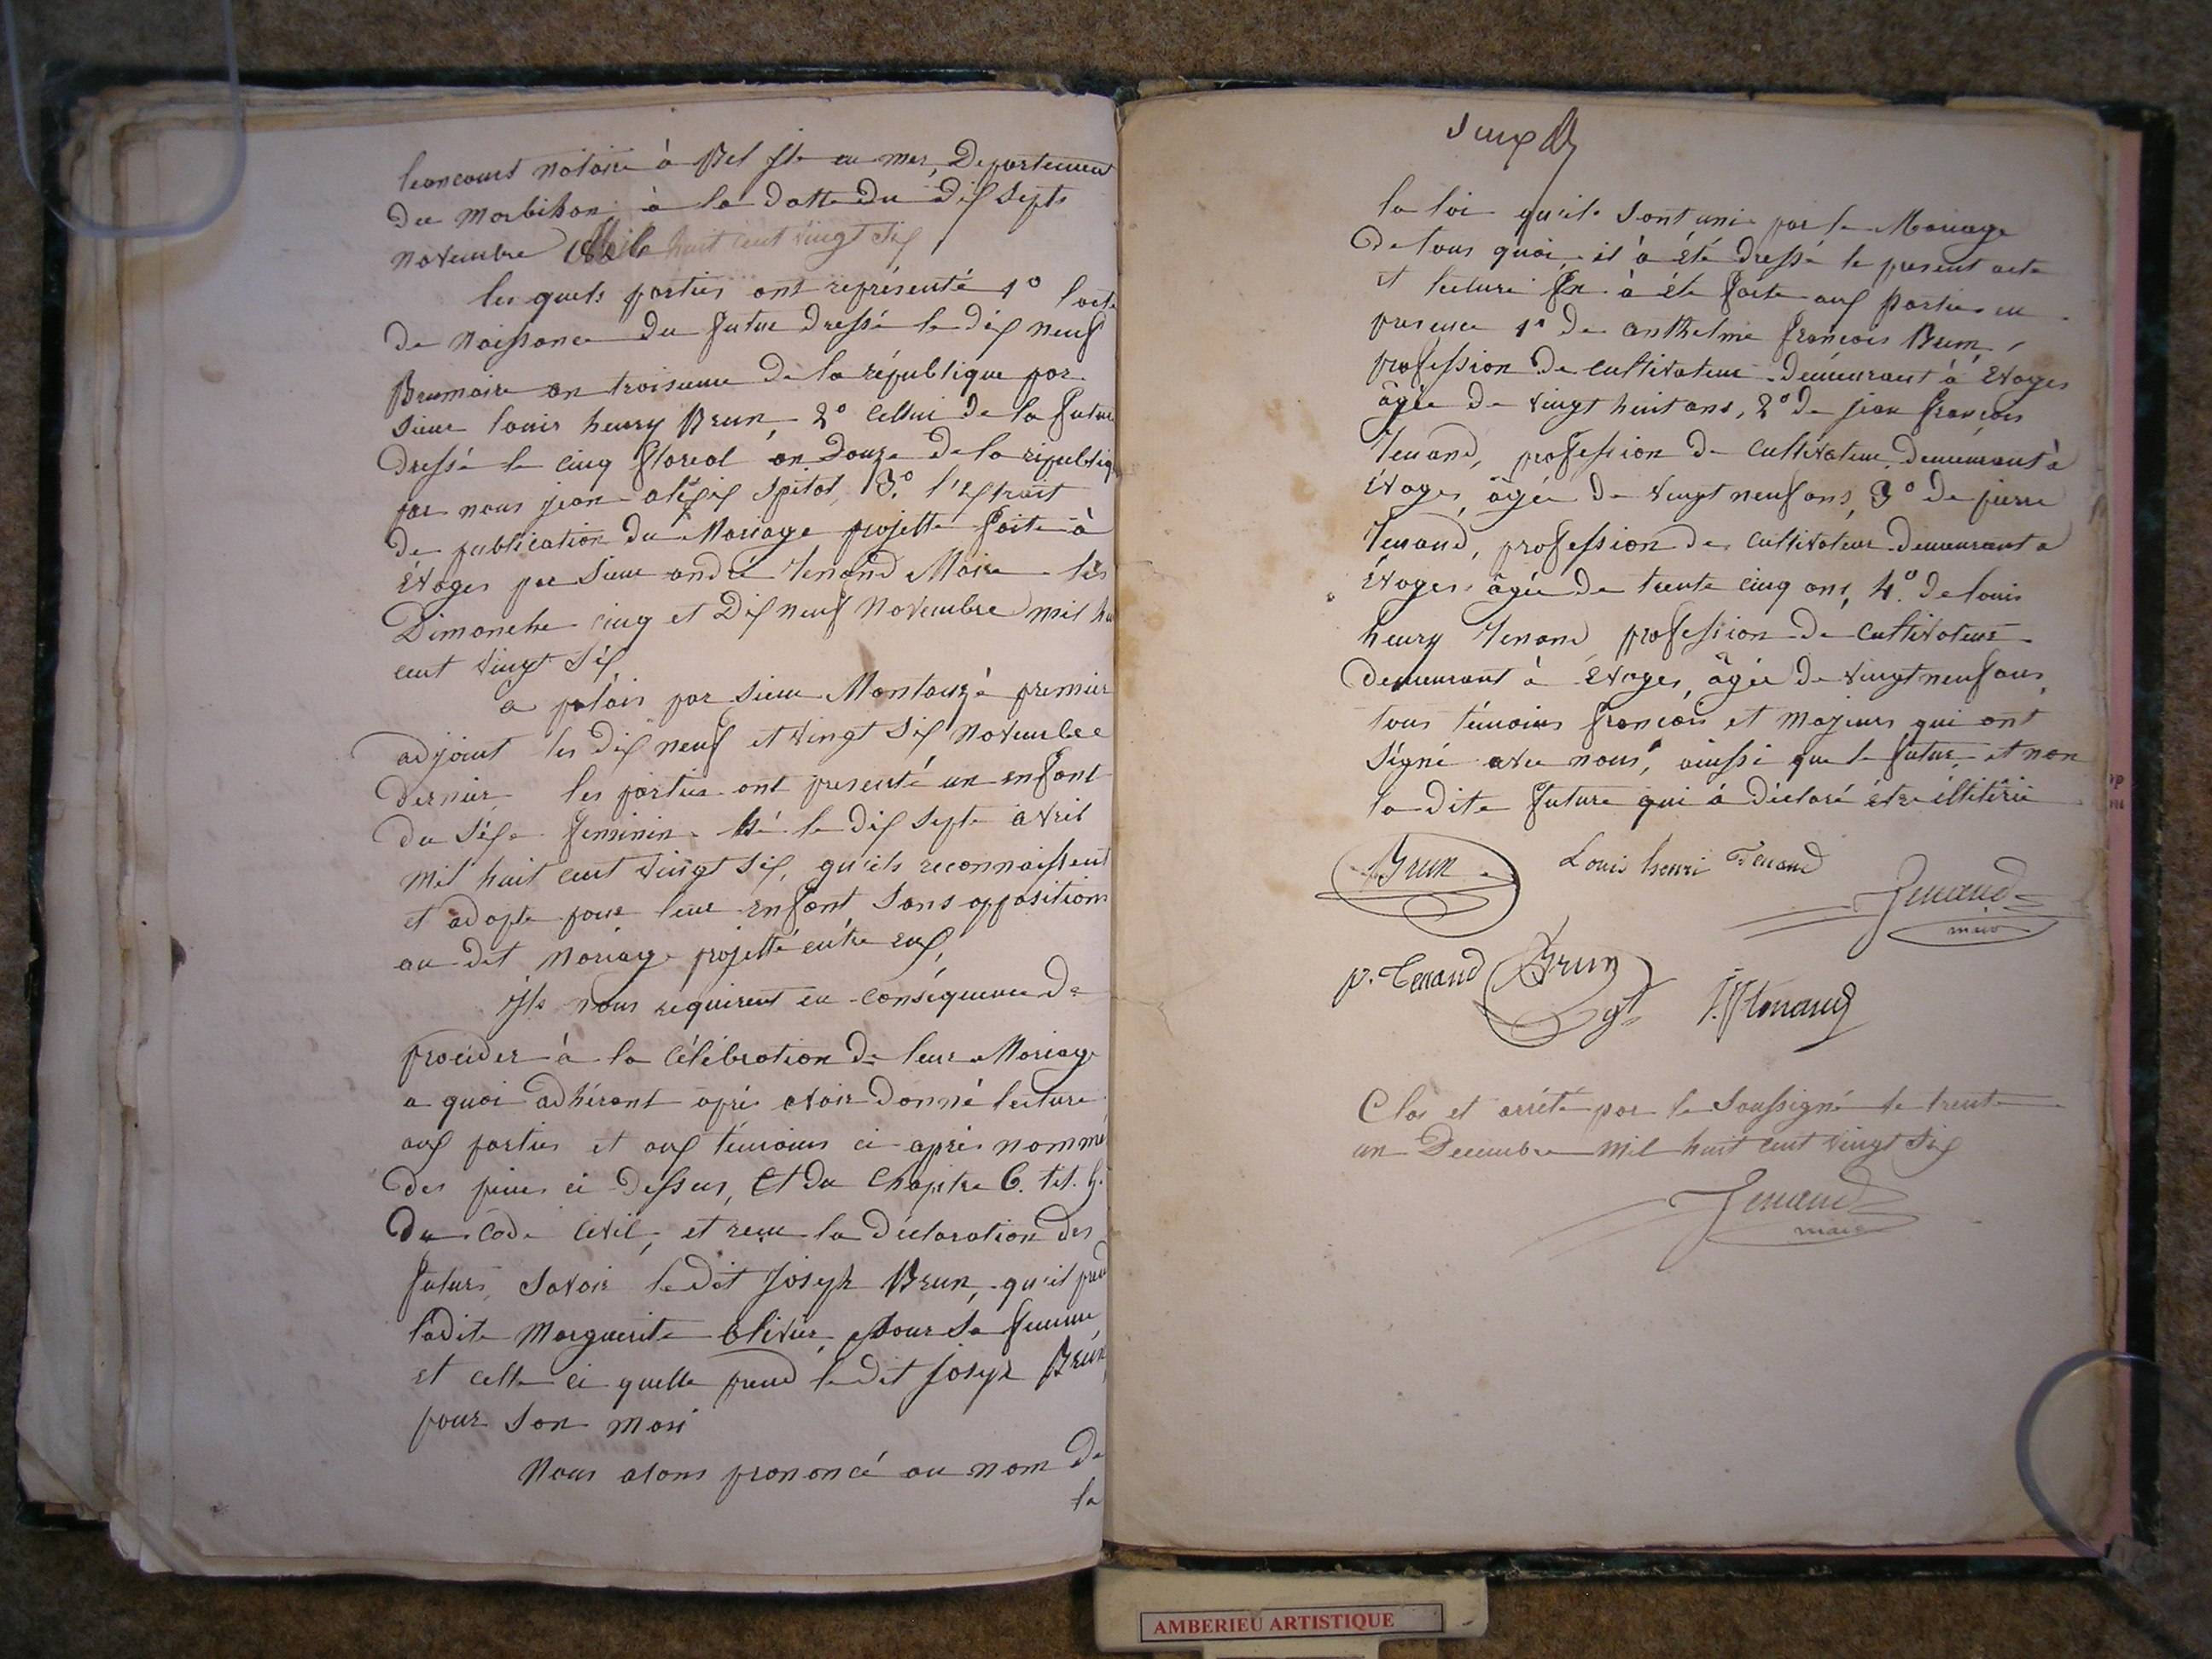 leoncourt notaire à Bel Jle en mer, Departement
Du Morbihan à la datte du dix septe
novembre mil huit cent vingt six
les quels parties ont représenté 1° l'acte
De Naissance du futur Dressé le dix neuf
Brumaire an troisieme De la république par
Sieur louis henry Brun, 2° Cellui de la future
Dressé le cinq floreal an Douze De la républiq
par nous jean alexis Spitol, 3° l'Extrait
De publication du Mariage projetté faite à
Évoges par Sieur andré tenand Maire les
Dimanche cinq et Dix neuf Novembre mil hu
cent vingt six
a palais par sieur Montauzé premier
adjoint les dix neuf et vingt six Novembre
dernier les parties ont presenté un enfant
du séxe feminin né le dix septe avril
mil huit cent vingt six, qu'ils reconnaissent
et adopte pour leur enfant, Sans opposition
au dit Mariage projetté entre eux,
Jls nous requirent en conséquence de
procéder à la Célébration de leur Mariage
a quoi adhérant après avoir donné lecture
aux parties et aux témoins ci après nommé
des pieces ci dessus, et du chapitre 6. tit. 5.
Du Code Civil, et reçu la déclaration des
futurs, Savoir ledit Joseph Brun, qu'il prend
ladite Marguerite Olivier, pour sa femme
et celle ci quelle prend le dit Joseph Brun
pour son mari
Nous avons prononcé au nom de
la
la loi qu'ils sont unis par le Mariage
De tous quoi, il à été dressé le present acte
et lecture en à été faite aux parties en
presence 1° de anthelme françois Brun,
profession de cultivateur demeurant à Evoges
âgée de vingt huit ans, 2° de jean françois
Tenand, profession de cultivateur, demeurant à
Évoges, âgée de vingt neuf ans, 3° de pierre
Tenand, profession de cultivateur demeurant a
Évoges, âgée de trente cinq ans, 4° de louis
henry Tenand profession de cultivateur
demeurant à Evoges, âgée de vingt neuf ans,
tous témoins françois et majeurs qui ont
signé avec nous, ainssi que le futur, et non
la dite future qui à déclaré être illitérée
Brun Louis henri Tenand
Tenand
maire
p. Tenand Brun J. F. tenand
Clos et arrêté par le Soussigné le trente
un Decembre mil huit cent vingt six
Tenand
maire
AMBERIEU ARTISTIQUE